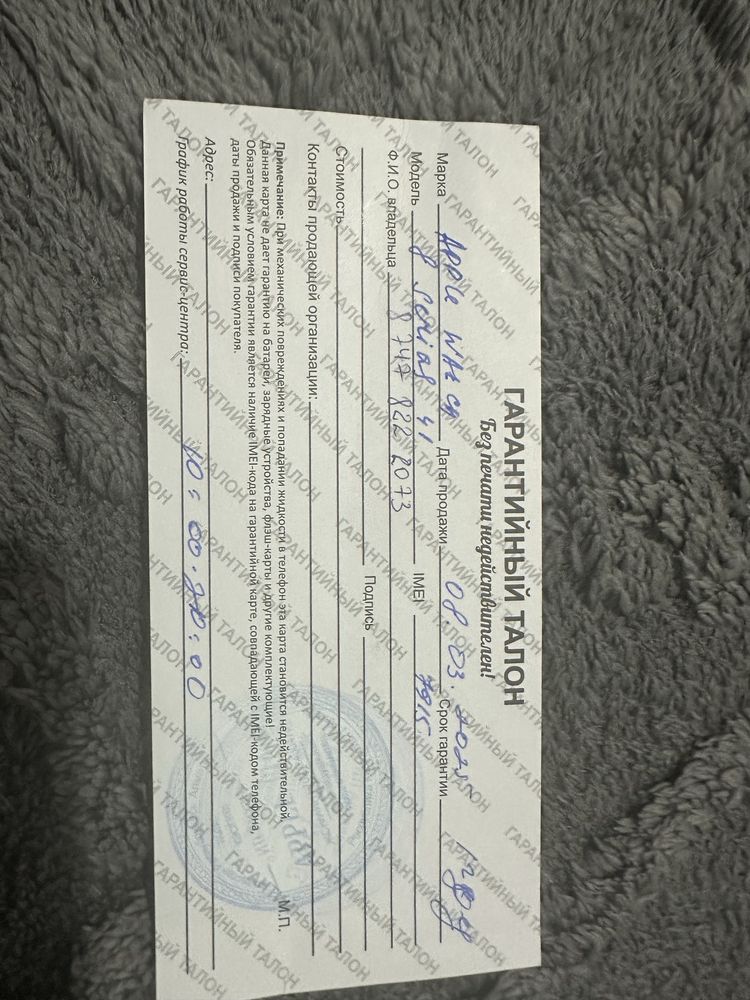 ГАРАНТИЙНЫЙ ТАЛОН
Без печати недействителен!
Марка Apple Watch Дата продажи 08.03.2025 Срок гарантии
Модель 8 Serias 41 IMEI 7915
Ф.И.О. владельца 8 747 822 2073
Подпись
Стоимость
Контакты продающей организации:
Примечание: При механических повреждениях и попадании жидкости в телефон эта карта становится недействительной.
Данная карта не дает гарантию на батарей, зарядные устройства, флэш-карты и другие комплектующие!
Обязательным условием гарантии является наличие IMEI-кода на гарантийной карте, совпадающей с IMEI-кодом телефона,
даты продажи и подписи покупателя.
М.П.
Адрес:
График работы сервис-центра: 10:00-20:00